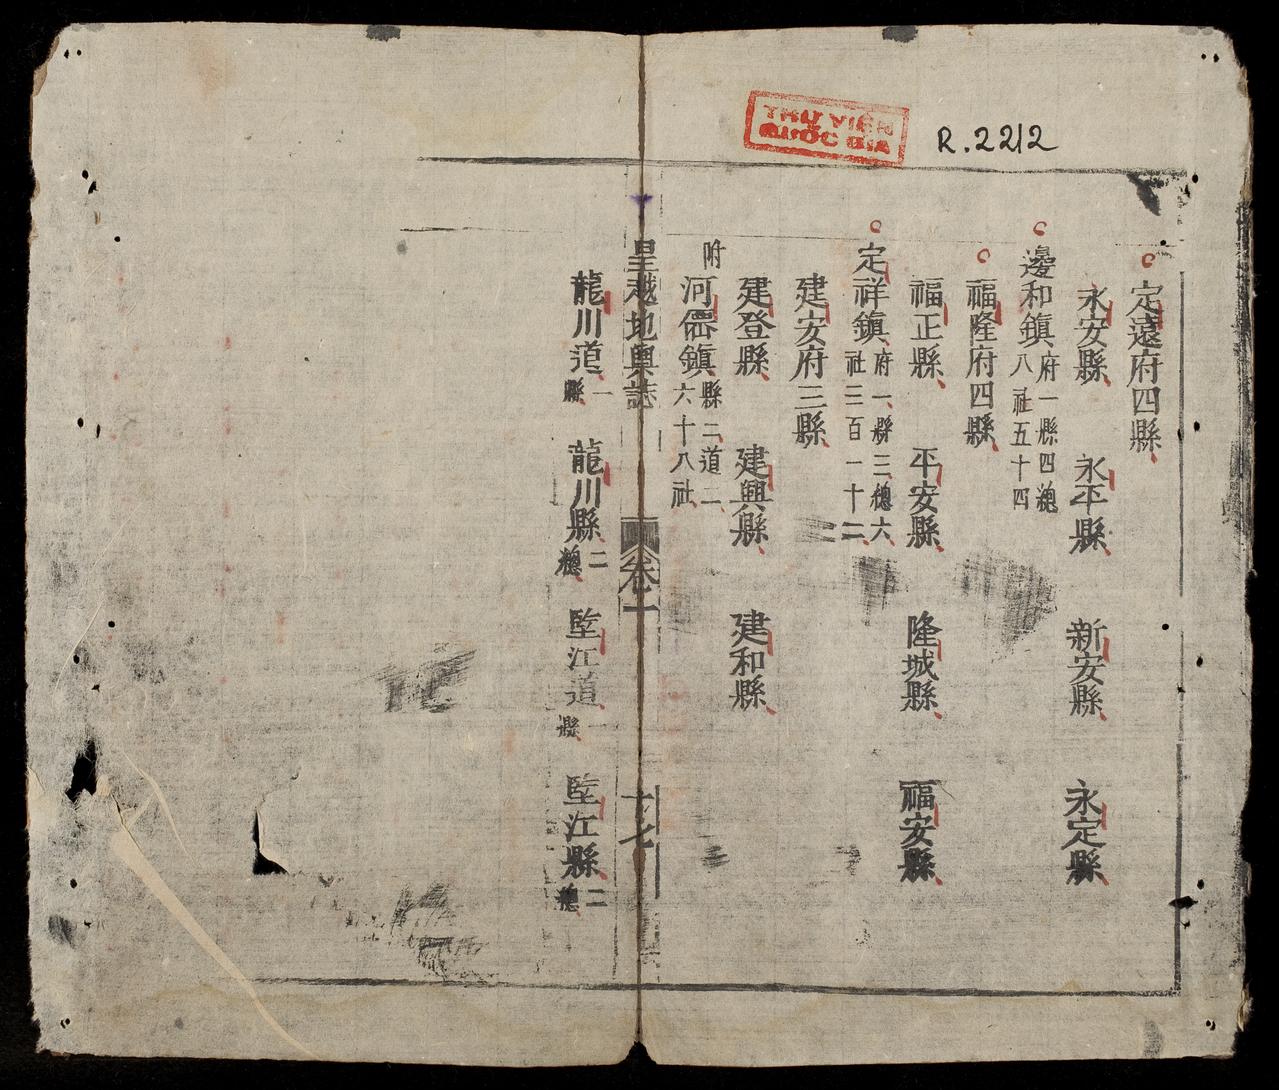 THƯ VIỆN
QUỐC GIA
R.2212
定遠府四縣
永安縣 永平縣 新安縣 永定縣
邊和鎮 府一縣四總
八社五十四
福隆府四縣
福正縣 平安縣 隆城縣 福安縣
定祥鎮 府一縣三總六
社三百一十二
建安府三縣
建登縣 建興縣 建和縣
附
河僊鎮 縣二道二
六十八社
皇越地輿誌 卷一 十七
龍川道 一縣 龍川縣 二總 堅江道 一縣 堅江縣 二總